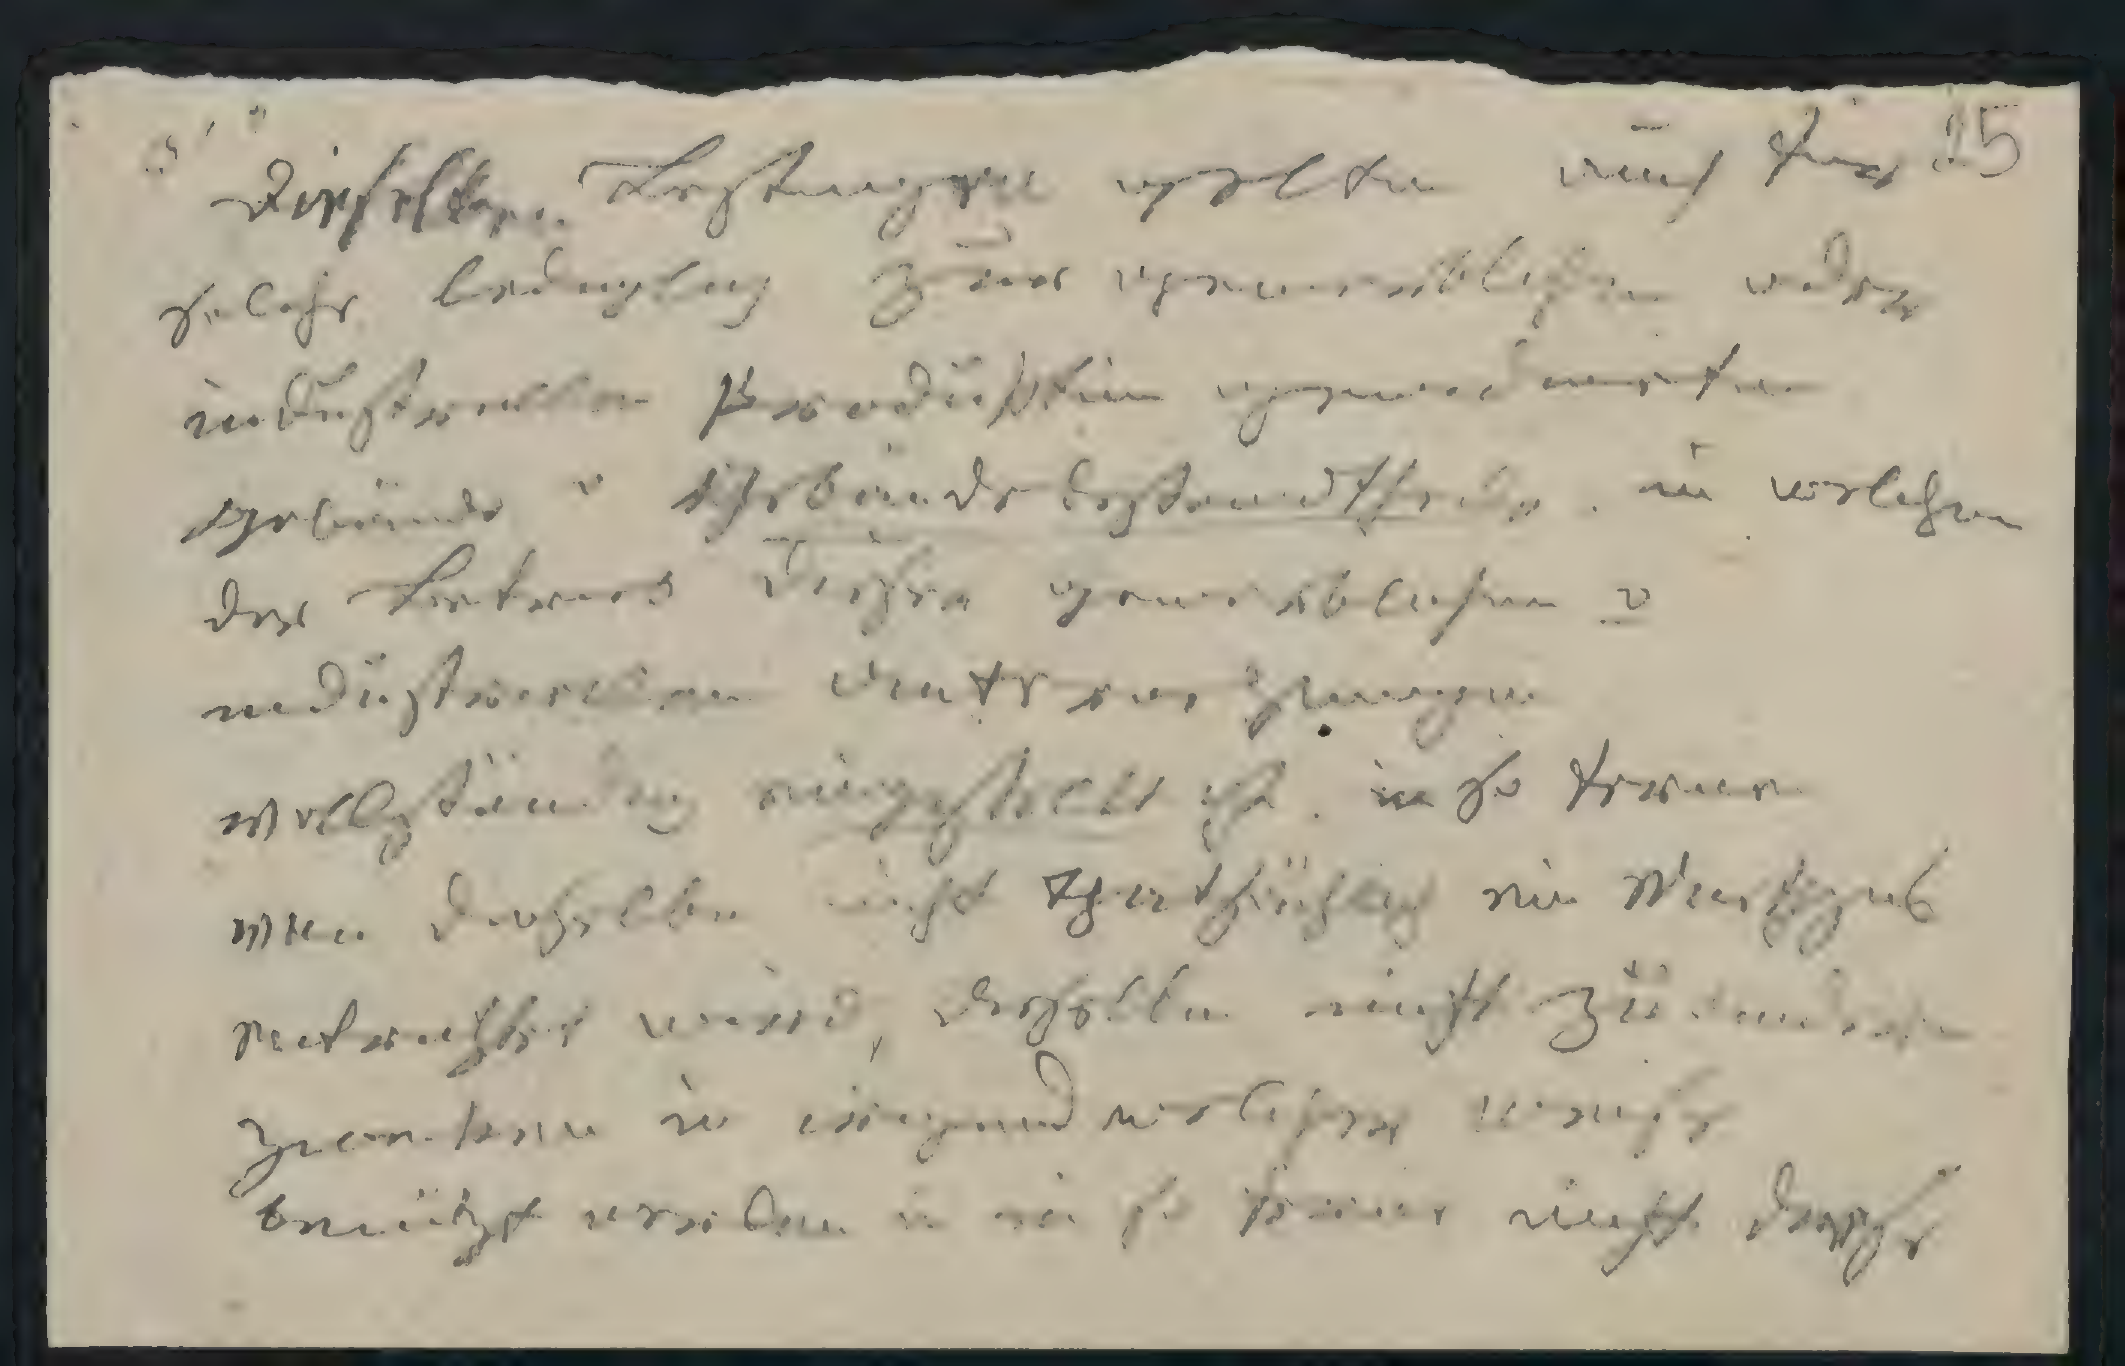 25
Dieselben Bestimmungen gelten auch für
solche lediglich zur gewerblichen oder
industriellen Production gewidmeten
Gebäude u Gebäudebestandtheile, in welchen
der Betrieb dieser gewerblichen u
industriellen Unternehmungen
vollständig eingestellt ist, in so ferne
von denselben nicht thatsächlich ein Miethzins
entrichtet wird, dieselben nicht zu anderen
Zwecken in irgend welcher Weise
benützt werden u in so ferne nicht diese